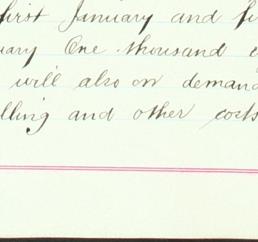 first January and
uary One thousand
will also on demand
lling and other costs